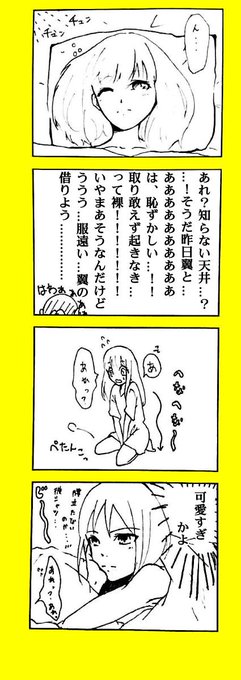 チュン
チュン
ん…
あれ？知らない天井…？
…！そうだ昨日翼と…
ああああああああああ
は、恥ずかしい…！！
取り敢えず起きなき…
って裸！！！！！！！
いやまあそうなんだけど
ううう…服遠い…翼のあ
借りよう…………
はわああ
へなへな〜
あ
あれっ？
ぺたんこっ
可愛すぎ
かよ
じー
あれっ？あれ